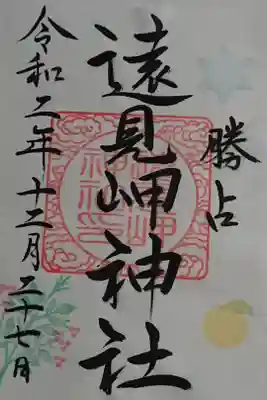 勝占
遠見岬神社
令和二年十二月二十七日